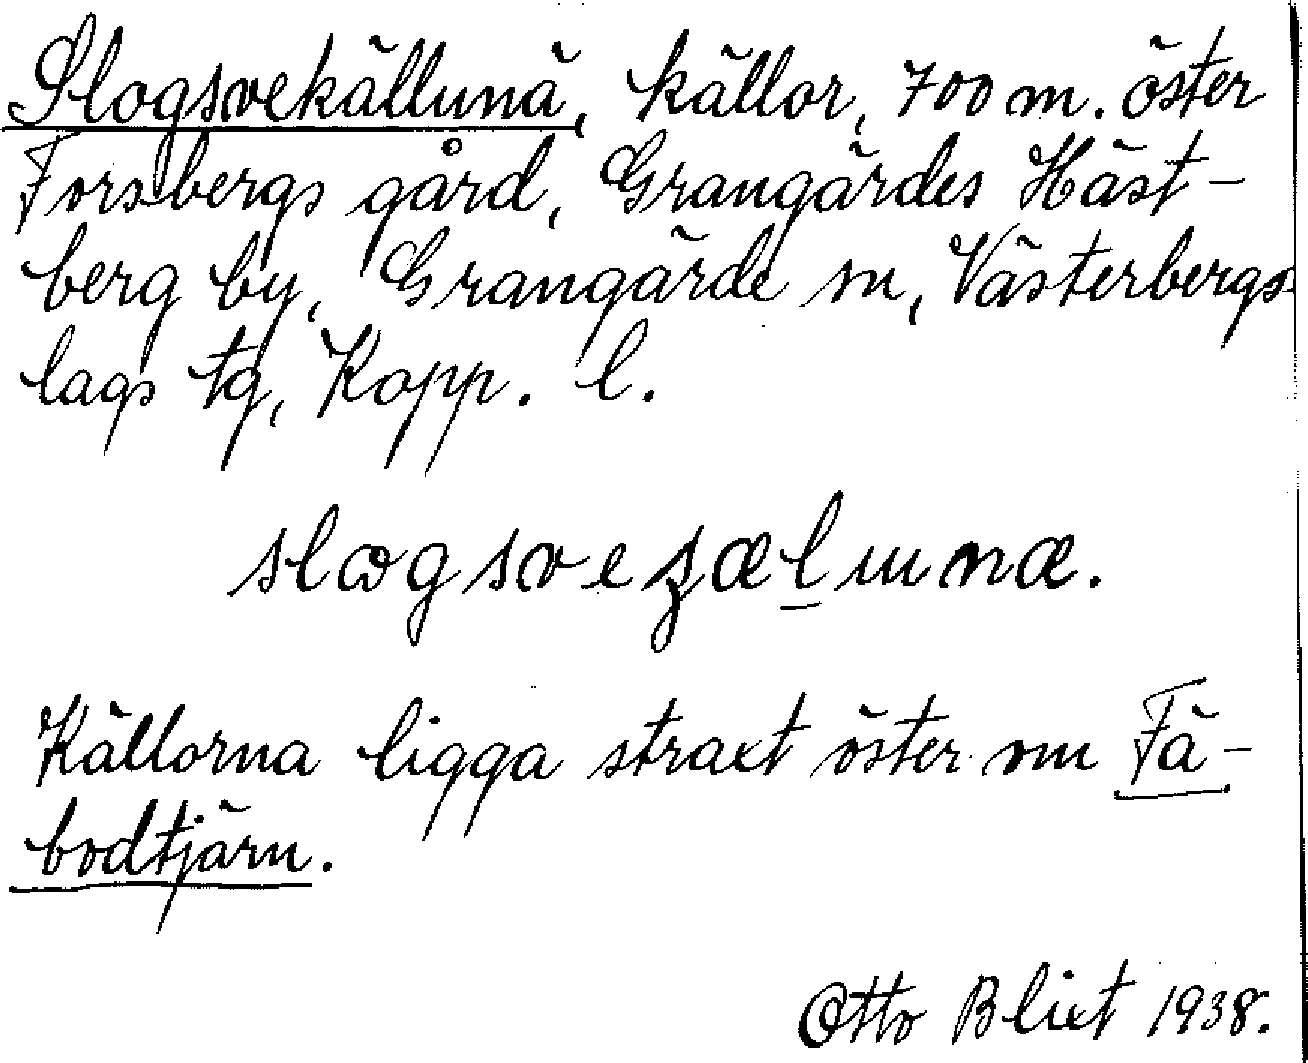 Slogsvekällunä, källor, 700 m. öster
Forsbergs gård, Grangärdes Häst-
berg by, Grangärde sn, Västerbergs
lags tg, Kopp. l.
slogsveʒælunæ.
Källorna ligga straxt öster om Fä-
bodtjärn.
Otto Blixt 1938.